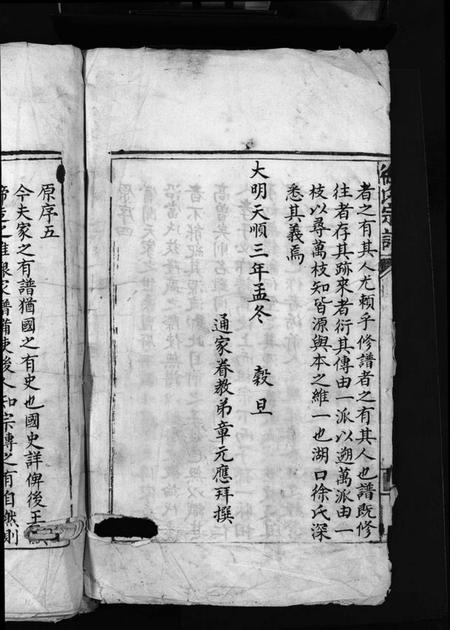 徐氏宗譜
者之有其人尤賴乎修譜者之有其人也譜既修
往者存其跡來者衍其傳由一派以遡萬派由一
枝以尋萬枝知皆源與本之維一也湖口徐氏深
悉其義焉
大明天順三年孟冬 穀旦
通家眷教弟章元應拜撰
原序五
今夫家之有譜猶國之有史也國史詳俾後王
家譜備使後人知宗傳之有自然則